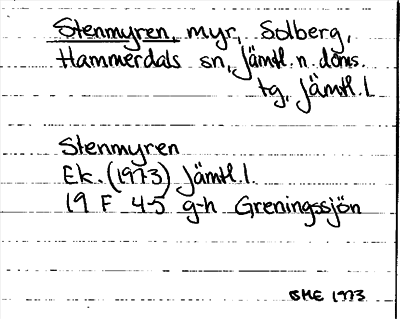 Stenmyren, myr, Solberg,
Hammerdals sn, Jämtl. n. doms.
tg, Jämtl. l
Stenmyren
Ek. (1973) Jämtl. l.
19 F 4-5 g-h Greningssjön
BME 1973